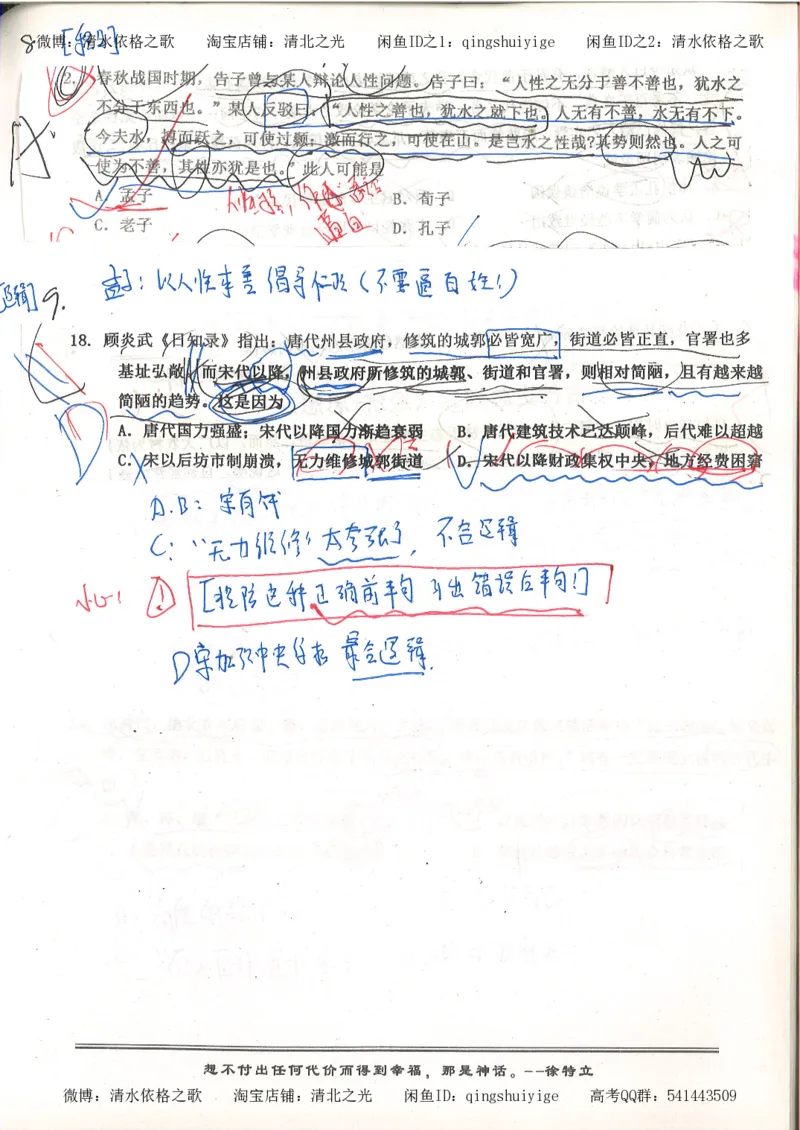 8.
微博：清水依格之歌 淘宝店铺：清北之光 闲鱼ID之1：qingshuiyige 闲鱼ID之2：清水依格之歌
2. 春秋战国时期，告子曾与某人辩论人性问题。告子曰：“人性之无分于善不善也，犹水之
不分于东西也。”某人反驳曰：“人性之善也，犹水之就下也。人无有不善，水无有不下。
今夫水，搏而跃之，可使过颡；激而行之，可使在山。是岂水之性哉?其势则然也。人之可
使为不善，其性亦犹是也。”此人可能是
A
A. 孟子 B. 荀子
C. 老子 D. 孔子
[逻辑] 9.
孟子：以人性本善倡导仁政（不要逼百姓！）
18. 顾炎武《日知录》指出：唐代州县政府，修筑的城郭必皆宽广，街道必皆正直，官署也多
基址弘敞。而宋代以降，州县政府所修筑的城郭、街道和官署，则相对简陋，且有越来越
简陋的趋势。这是因为
D
A. 唐代国力强盛；宋代以降国力渐趋衰弱 B. 唐代建筑技术已达巅峰，后代难以超越
C. 宋以后坊市制崩溃，无力维修城郭街道 D. 宋代以降财政集权中央，地方经费困窘
A.B：宋有钱
C：“无力维修”太夸张了，不合逻辑
小心！
[提防这种正确前半句 引出错误后半句！]
D宋加强中央集权 最合逻辑.
想不付出任何代价而得到幸福，那是神话。--徐特立
微博：清水依格之歌 淘宝店铺：清北之光 闲鱼ID：qingshuiyige 高考QQ群：541443509